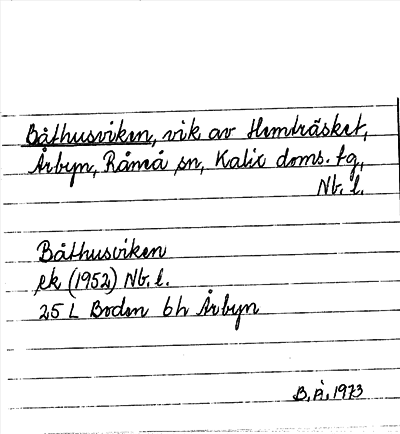 Båthusviken, vik av Hemträsket,
Årbyn, Råneå sn, Kalix doms. tg,
Nb. l.
Båthusviken
ek (1952) Nb. l.
25 L Boden 6h Årbyn
B. Å. 1973